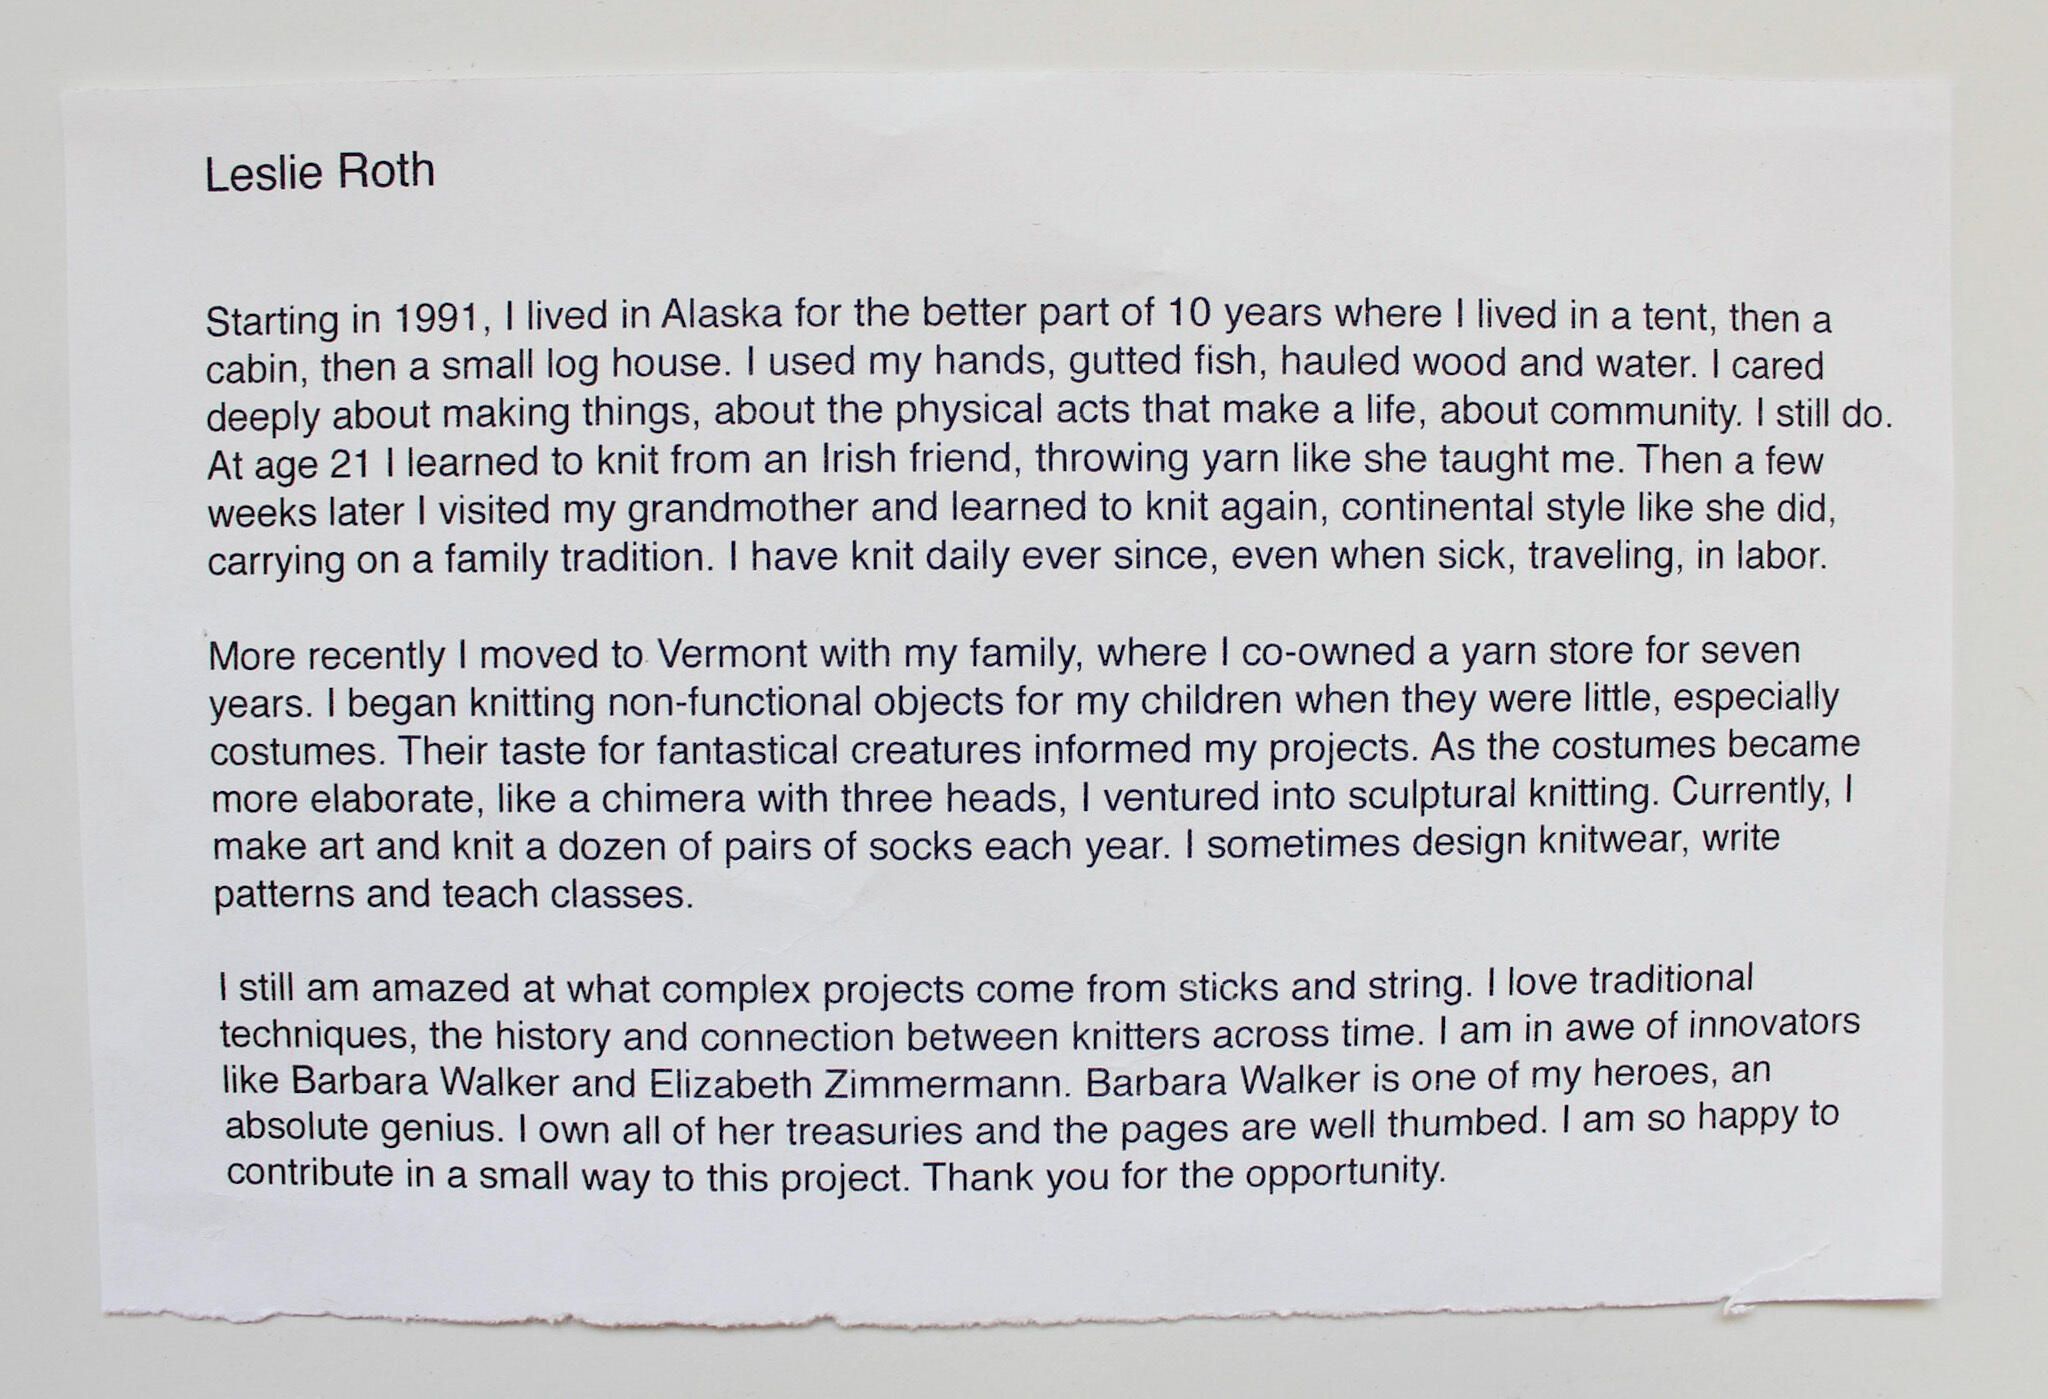 Leslie Roth
Starting in 1991, I lived in Alaska for the better part of 10 years where I lived in a tent, then a
cabin, then a small log house. I used my hands, gutted fish, hauled wood and water. I cared
deeply about making things, about the physical acts that make a life, about community. I still do.
At age 21 I learned to knit from an Irish friend, throwing yarn like she taught me. Then a few
weeks later I visited my grandmother and learned to knit again, continental style like she did,
carrying on a family tradition. I have knit daily ever since, even when sick, traveling, in labor.
More recently I moved to Vermont with my family, where I co-owned a yarn store for seven
years. I began knitting non-functional objects for my children when they were little, especially
costumes. Their taste for fantastical creatures informed my projects. As the costumes became
more elaborate, like a chimera with three heads, I ventured into sculptural knitting. Currently, I
make art and knit a dozen of pairs of socks each year. I sometimes design knitwear, write
patterns and teach classes.
I still am amazed at what complex projects come from sticks and string. I love traditional
techniques, the history and connection between knitters across time. I am in awe of innovators
like Barbara Walker and Elizabeth Zimmermann. Barbara Walker is one of my heroes, an
absolute genius. I own all of her treasuries and the pages are well thumbed. I am so happy to
contribute in a small way to this project. Thank you for the opportunity.